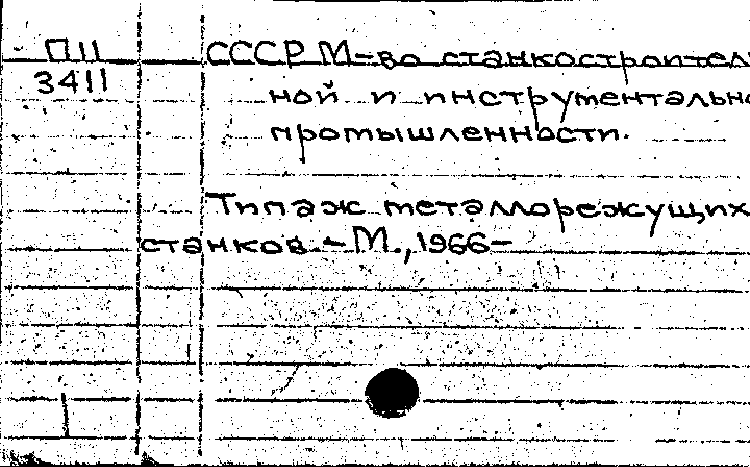 П11
3411
СССР М-во станкостроитель
ной и инструментально
промышленности.
Типаж металлорежущих
станков. – М., 1966–